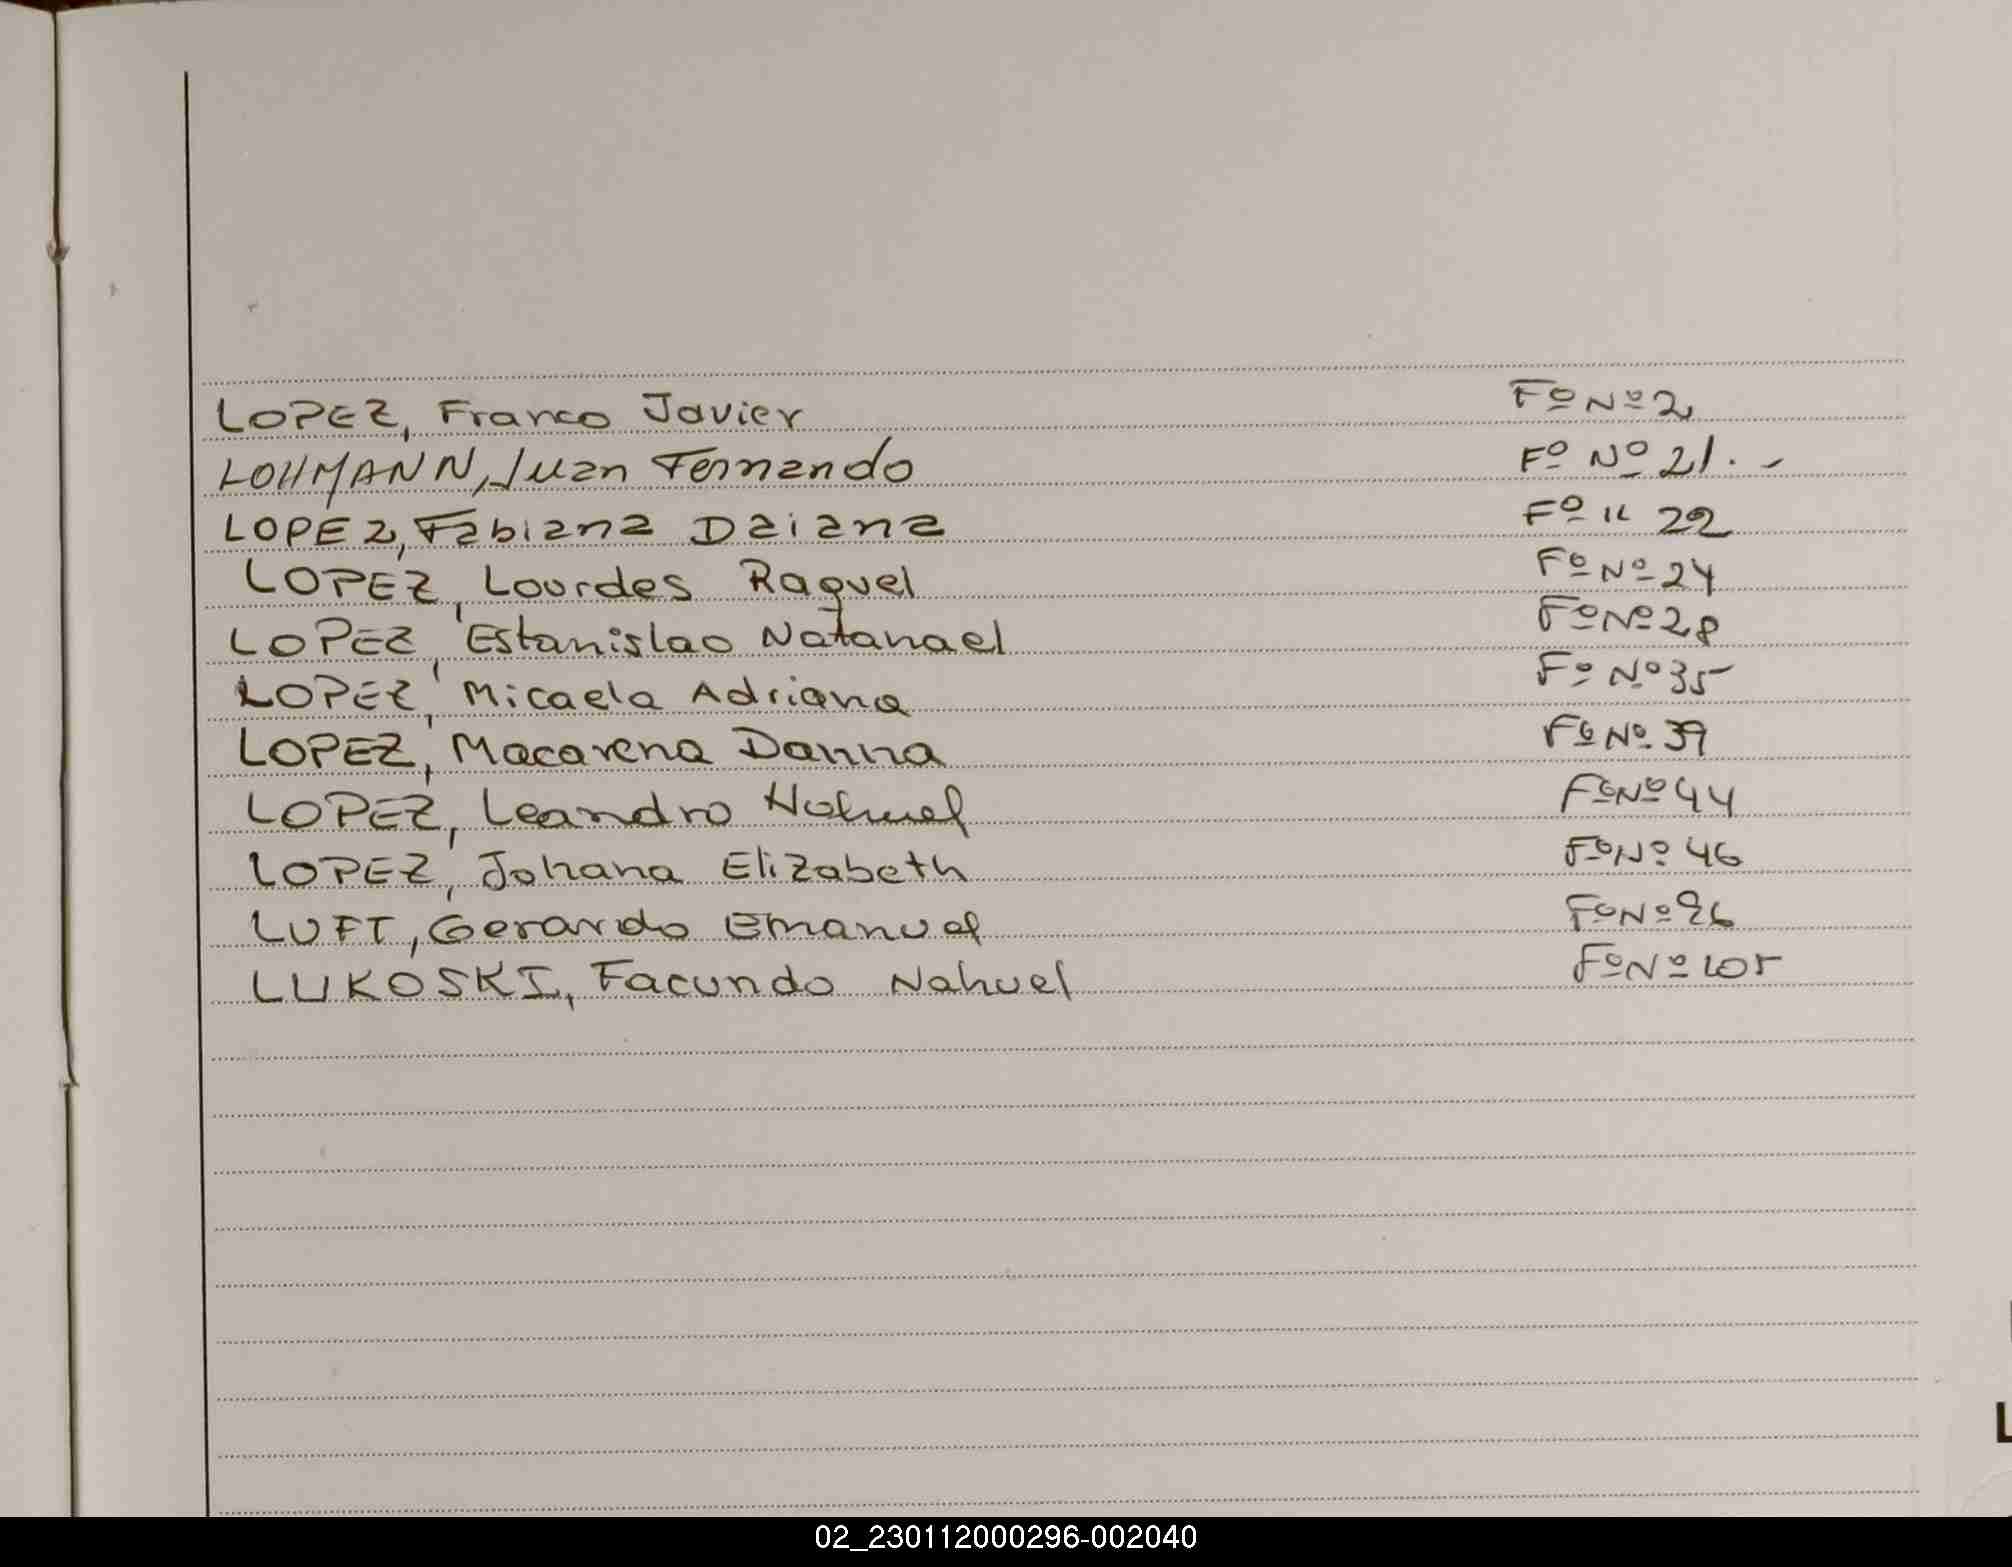 LOPEZ, Franco Javier Fº Nº 2
LOHMANN, Juan Fernando Fº Nº 21. -
LOPEZ, Fabiana Daiana Fº " 22
LOPEZ, Lourdes Raquel Fº Nº 24
LOPEZ, Estanislao Natanael Fº Nº 28
LOPEZ, Micaela Adriana Fº Nº 35
LOPEZ, Macarena Danna Fº Nº 39
LOPEZ, Leandro Nahuel Fº Nº 44
LOPEZ, Johana Elizabeth Fº Nº 46
LUFT, Gerardo Emanuel Fº Nº 96
LUKOSKI, Facundo Nahuel Fº Nº 105
L
02_230112000296-002040